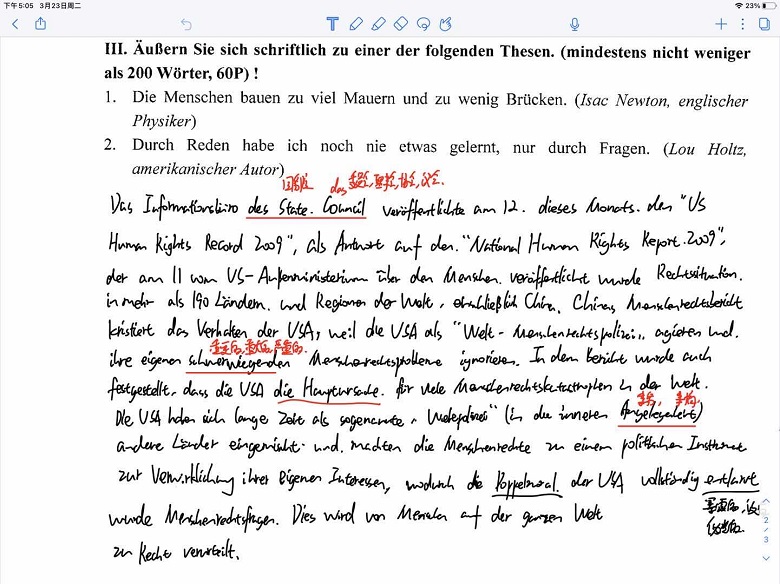 下午5:05 3月23日周二
23%
T
III. Äußern Sie sich schriftlich zu einer der folgenden Thesen. (mindestens nicht weniger
als 200 Wörter, 60P) !
1. Die Menschen bauen zu viel Mauern und zu wenig Brücken. (Isac Newton, englischer
Physiker)
2. Durch Reden habe ich noch nie etwas gelernt, nur durch Fragen. (Lou Holtz,
amerikanischer Autor)
das
Das Informationsbüro des State. Council veröffentlichte am 12. dieses Monats. den "US
Human Rights Record 2009", als Antwort auf den. "National Human Rights Report. 2009",
der am 11 vom US-Außenministerium über den Menschen. veröffentlicht wurde Rechtssituation.
in mehr als 190 Ländern. und Regionen der Welt, einschließlich China. Chinas Menschenrechtsbericht
kristiert das Verhalten der USA, weil die USA als "Welt-Menschenrechtspolizei" agieren und.
ihre eigenen schwerwiegenden Menschenrechtsprobleme ignorieren. In dem Bericht wurde auch
festgestellt, dass die USA die Hauptursache. für viele Menschenrechtskatastrophen in der Welt.
Die USA haben sich lange Zeit als sogenannte "Weltpolizei" (in die inneren Angelegenheit)
andere Länder eingemischt. und. machten die Menschenrechte zu einem politischen Instrument
zur Verwirklichung ihrer eigenen Interessen, wodurch die Doppelmoral. der USA vollständig entlarvt
wurde Menschenrechtsfragen. Dies wird von Menschen auf der ganzen Welt
zu Recht verurteilt.
2
3